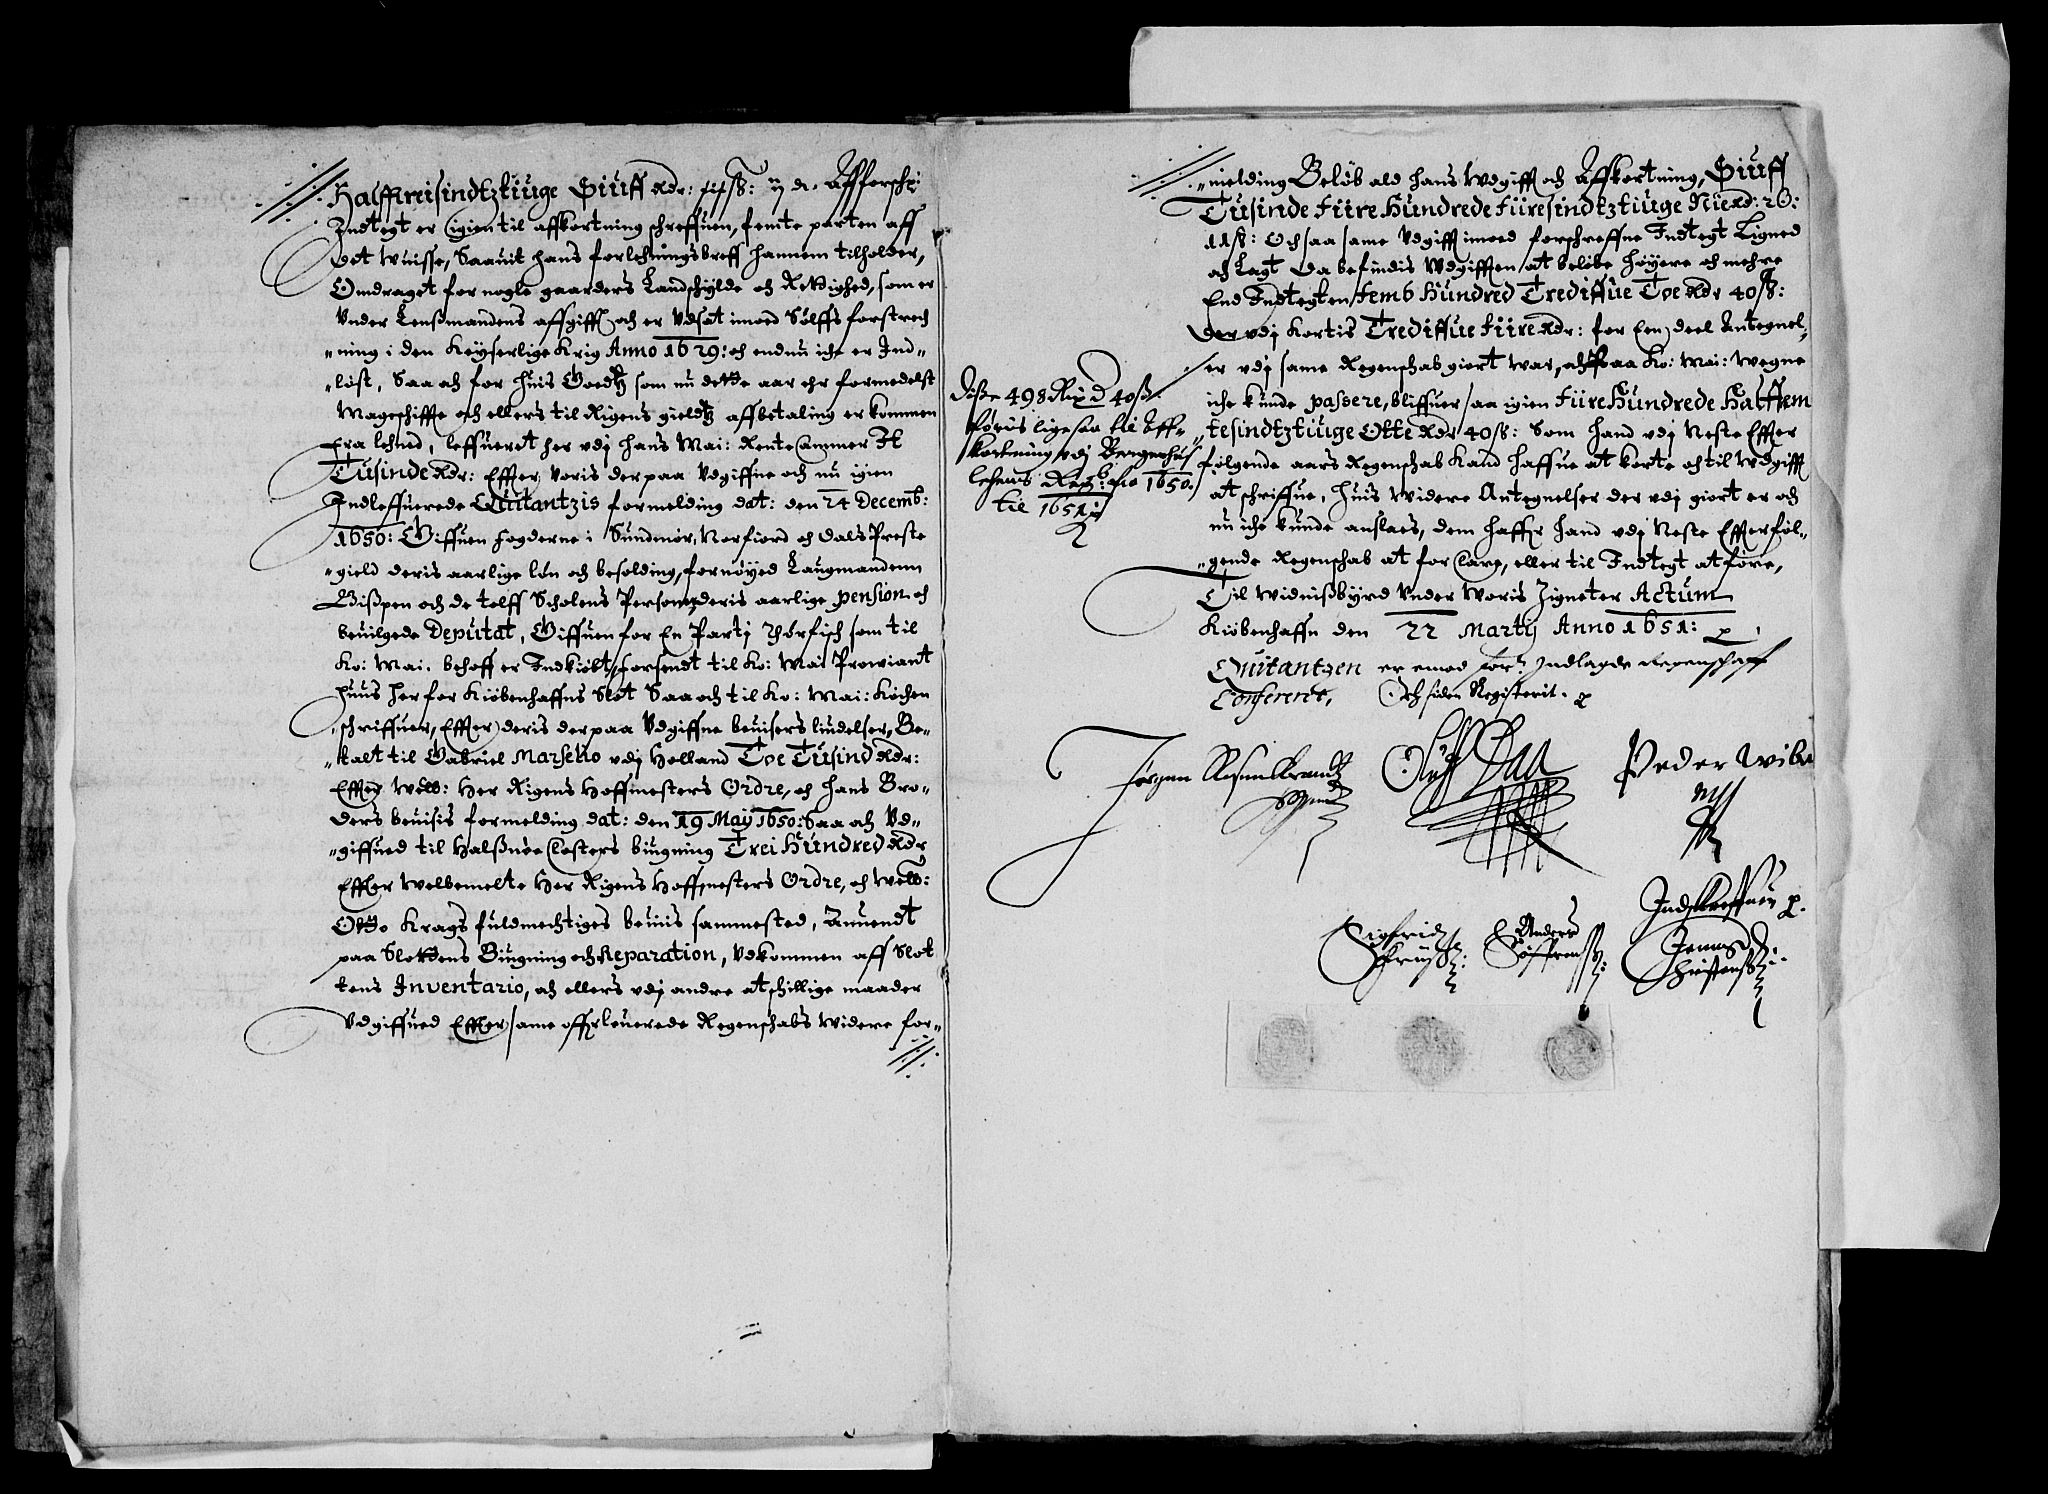 Halfftreisindtztiuge Siuff Rdr: ß: Affforschr:
Indtegt er igien til affkortning schreffuen, femte parten aff
Det Wuisse, Saauit hans forlehningsbreff hannem tilholder,
Omdraget for nogle gaarders Landschylde och Rettighed, som er
Vnder Lenßmandens affgifft och er Vdsat imod Sølffs forstrech
"ning i den Keyserlige Krig Anno 1629: och endnu iche er Ind"
"løst, Saa och for huis Goedtz som nu dette aar ehr formedelst
Mageschiffte och ellers til Rigens gieldtz affbetaling er kommen
fra lehned, leffueret her vdj hans Mai: Rente Cammer It
Tusinde Rdr: Effter Voris derpaa Vdgiffne och nu igien
Indleffuerede Quitantzis formelding dat: den 24 Decemb:
1650: Giffuen fogderne i Sundmør, Norfiord och Dals Preste
"gield deris aarlige løn och besolding, fornøyed Laugmanden
Bißpen och de tolff Scholens Personer deris aarlige pension och
beuilgede Deputat, Giffuen for En Partj Thørfisch som til
Ko: Mai. behoff er Indkiøbt, forsendt til Ko: Mai Prowiant
Huus her for Kiøbenhaffns Slot Saa och til Ko: Mai: Køchen
"schriffuer, Effter deris derpaa Vdgiffne beuisers liudelser, Be"
"talt til Gabriel Marselio vdj Holland Toe Tusind Rdr:
Effter Welb: Her Rigens Hoffmesters Ordre, och hans Bro"
Ders beuisis formelding dat: den 19 May 1650: Saa och Vd"
"giffued til Halßnøe Closters biugning Trei Hundred Rdr
Effter Welbemelte Her Rigens Hoffmesters Ordre, och Welb:
Otto Krags fuldmechtiges beuiis sammested, Anuendt
paa Slottens Biugning och Reparation, Vdkommen aff Slot
tens Inventario, och ellers vdj andre atschillige maader
Vdgiffued Effter same offuerleuerede Regenschabs Widere for"
"melding Beløb ald hans Vdgifft och Affkortning, Siuff
Tusinde fiire Hundrede fiiresindtztiuge Nie Rd: 26:
11ß: Och saa same Vdgifft imod forschreffne Indtegt Ligned
och Lagt Da befindis Vdgifften at beløbe høyere och mehre
End Indtegten, femb Hundred Trediffue Toe Rdr 40ß:
Der vdj kortis Trediffue fiire Rdr: for Een deel Antegnel"
"ser vdj same Regenschab giort war, och paa Ko: Mai: wegne
iche kunde passere, bliffuer saa igien fiire Hundrede Halffem
"tesindtztiuge Otte Rdr 40ß: Som hand vdj Neste Effter
følgende aars Regenschab Kand haffue at korte och til Vdgifft
at schriffue, Huis Widere Antegnelser der vdj giort er och
nu iche kunde anslaes, dem haffr hand vdj Neste Effterføl"
"gende Regenschab at forClare, eller til Indtegt at føre,
Til Widnißbyrd Vnder Woris Zigneter Actum
Kiøbenhaffn den 22 Martij Anno 1651:
Diße 498 Rix D 40ß.
føris ligesaa til Aff"
kortning vdj Bergenhus
lehens Regb: fra 1650.
til 1651
Quitantzen er emod for: Indlagde Regenschaff
Confereret, Och siden Registerit.
Jørgen Rosenkrandtz
Oluff Daa
Peder Wibe
Sigfrid
Anders
Indskreffuen
Jennes
Christenß